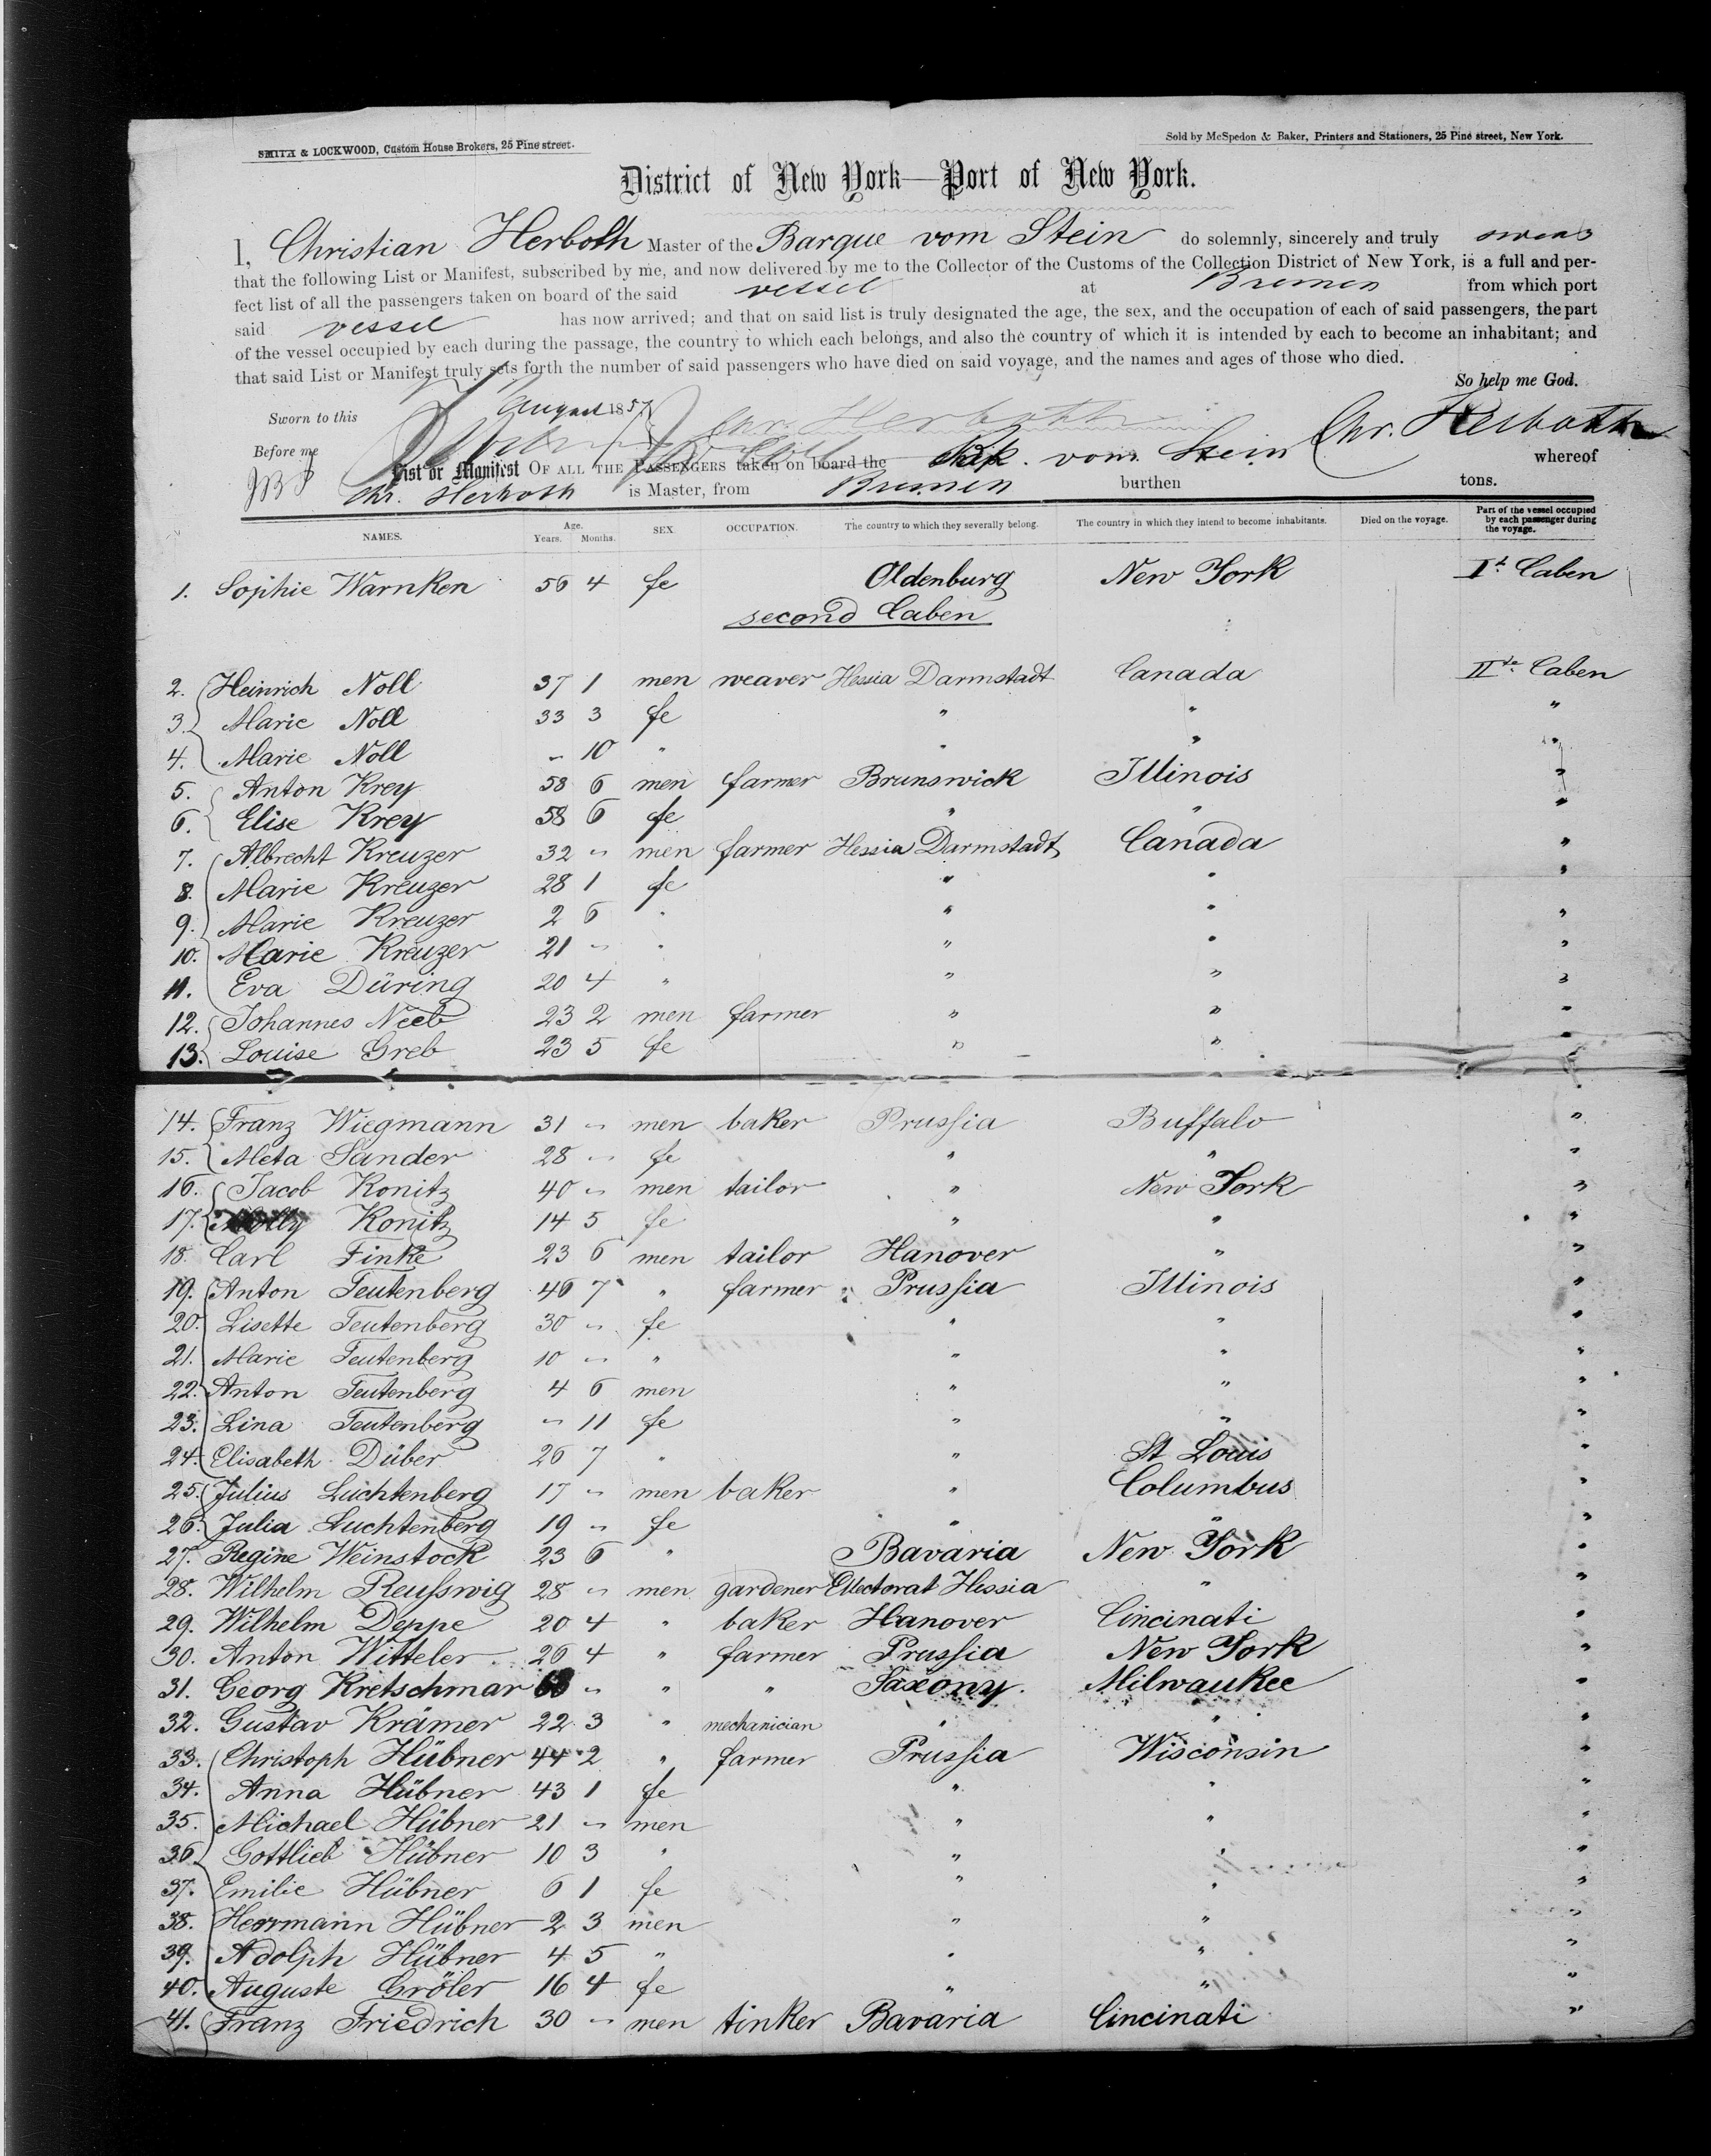 SMITH & LOCKWOOD, Custom House Brokers, 25 Pine street.
Sold by McSpedon & Baker, Printers and Stationers, 25 Pine street, New York.
District of New York—Port of New York.
I, Christian Herboth Master of the Barque vom Stein do solemnly, sincerely and truly swear
that the following List or Manifest, subscribed by me, and now delivered by me to the Collector of the Customs of the Collection District of New York, is a full and per-
fect list of all the passengers taken on board of the said vessel at Bremen from which port
said vessel has now arrived; and that on said list is truly designated the age, the sex, and the occupation of each of said passengers, the part
of the vessel occupied by each during the passage, the country to which each belongs, and also the country of which it is intended by each to become an inhabitant; and
that said List or Manifest truly sets forth the number of said passengers who have died on said voyage, and the names and ages of those who died.
So help me God.
Sworn to this August 1857
Chr. Herboth
Chr. Herboth
Before me
List or Manifest OF ALL THE PASSENGERS taken on board the vom Stein whereof
Chr. Herboth is Master, from Bremen burthen tons.
NAMES. Age. Years. Months. SEX. OCCUPATION. The country to which they severally belong. The country in which they intend to become inhabitants. Died on the voyage. Part of the vessel occupied by each passenger during the voyage.
1. Sophie Warnken 56 4 fe Oldenburg New York I t. Caben
second Caben
2. Heinrich Noll 37 1 men weaver Hessia Darmstadt Canada II te. Caben
3. Marie Noll 33 3 fe " " "
4. Marie Noll " 10 " " " "
5. Anton Krey 58 6 men farmer Brunswick Illinois "
6. Elise Krey 58 6 fe " " "
7. Albrecht Kreuzer 32 " men farmer Hessia Darmstadt Canada "
8. Marie Kreuzer 28 1 fe " " "
9. Marie Kreuzer 2 6 " " " "
10. Marie Kreuzer 21 " " " " "
11. Eva Düring 20 4 " " " "
12. Johannes Neeb 23 2 men farmer " " "
13. Louise Greb 23 5 fe " " "
14. Franz Wiegmann 31 " men baker Prussia Buffalo "
15. Meta Sander 28 " fe " " "
16. Jacob Konitz 40 " men tailor " New York "
17. Konitz 14 5 fe " " "
18. Carl Finke 23 6 men tailor Hanover " "
19. Anton Teutenberg 46 7 " farmer Prussia Illinois "
20. Lisette Teutenberg 30 " fe " " "
21. Marie Teutenberg 10 " " " " "
22. Anton Teutenberg 4 6 men " " "
23. Lina Teutenberg " 11 fe " " "
24. Elisabeth Düber 26 7 " " St Louis "
25. Julius Luchtenberg 17 " men baker " Columbus "
26. Julia Luchtenberg 19 " fe " " "
27. Regine Weinstock 23 6 " Bavaria New York "
28. Wilhelm Reusswig 28 " men gardener Ellectorat Hessia " "
29. Wilhelm Deppe 20 4 " baker Hanover Cincinati "
30. Anton Witteler 26 4 " farmer Prussia New York "
31. Georg Kretschmar " " " Saxony Milwaukee "
32. Gustav Krämer 22 3 " mechanician " " "
33. Christoph Hübner 44 2 " farmer Prussia Wisconsin "
34. Anna Hübner 43 1 fe " " "
35. Michael Hübner 21 " men " " "
36. Gottlieb Hübner 10 3 " " " "
37. Emilie Hübner 6 1 fe " " "
38. Herrmann Hübner 2 3 men " " "
39. Adolph Hübner 4 5 " " " "
40. Auguste Gröler 16 4 fe " " "
41. Franz Friedrich 30 " men tinker Bavaria Cincinati "